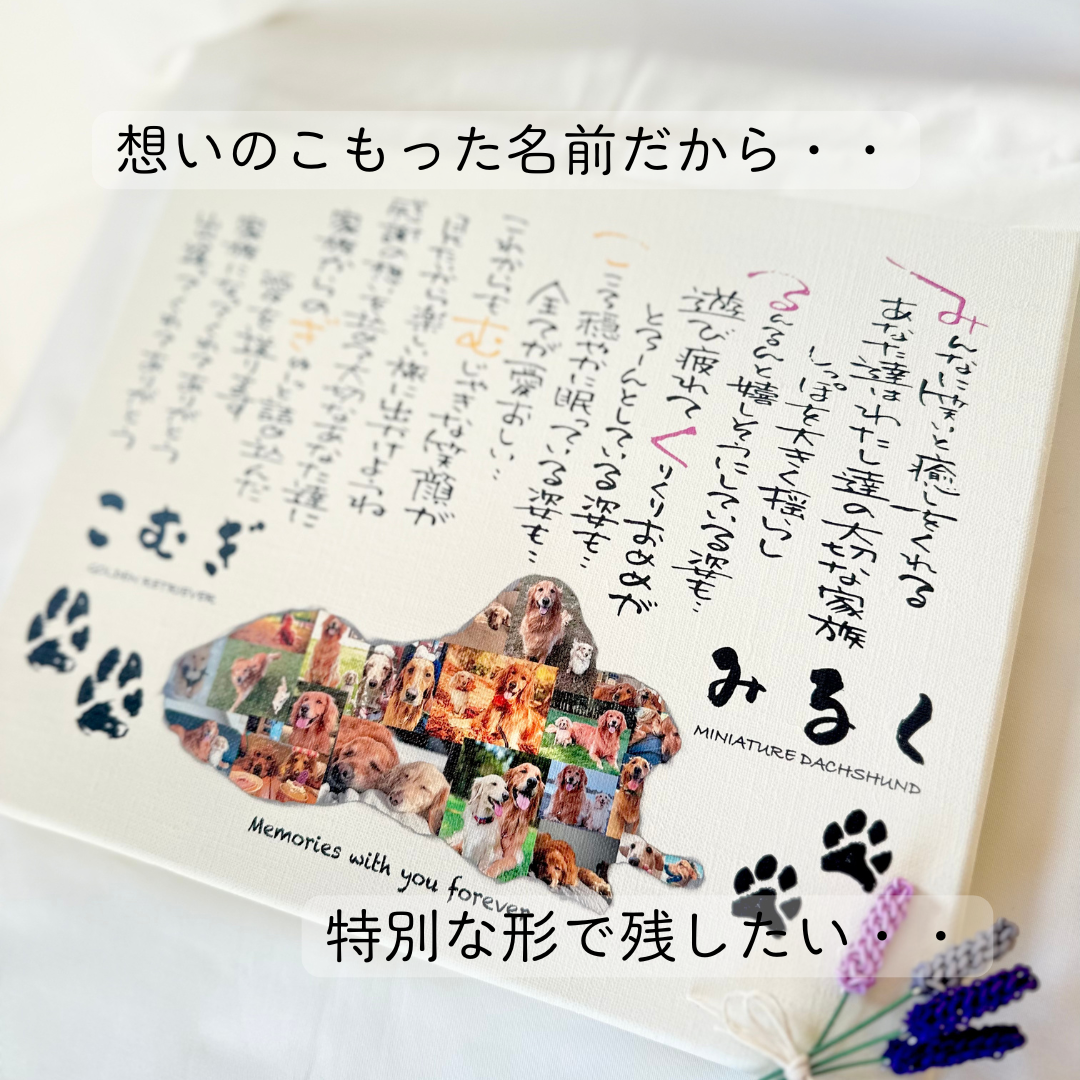 想いのこもった名前だから・・
みんなに笑いと癒しをくれる
あなた達はわたし達の大切な家族
しっぽを大きく揺らし
るんるんと嬉しそうにしている姿も…
遊び疲れてくりくりおめめが
とろーんとしている姿も…
こころ穏やかに眠っている姿も…
全てが愛おしい…
これからもむじゃきな笑顔が
家族になってくれてありがとう
出逢ってくれてありがとう
こむぎ
GOLDEN RETRIEVER
みるく
MINIATURE DACHSHUND
Memories with you forever
特別な形で残したい・・